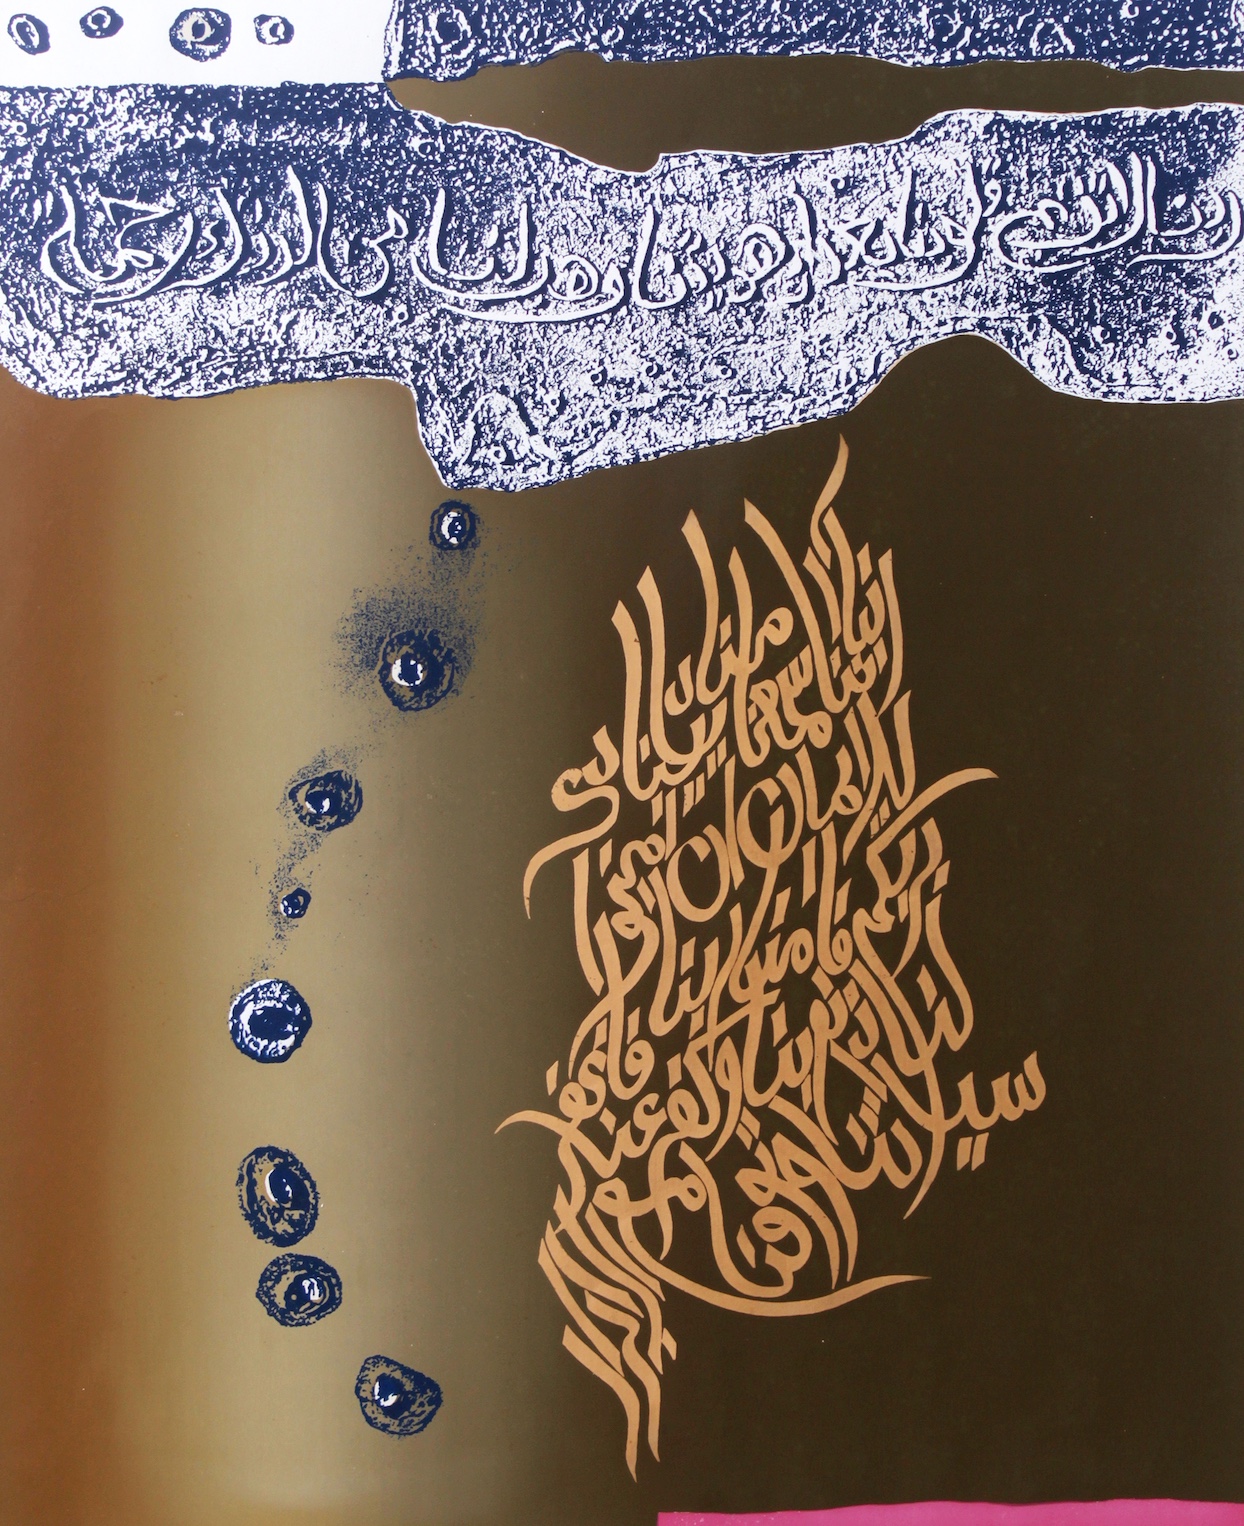 ربنا لا تزغ قلوبنا بعد اذ هديتنا وهب لنا من لدنك رحمة
ربنا اننا سمعنا مناديا ينادي
للايمان ان امنوا
بربكم فامنا ربنا فاغفر
لنا ذنوبنا وكفر عنا
سياتنا وتوفنا مع الابرار